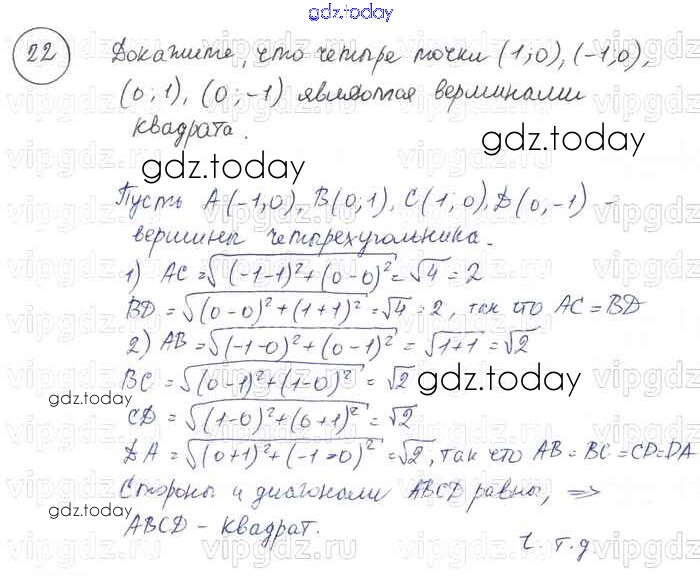 gdz.today
22 Докажите, что четыре точки (1;0), (-1;0),
(0;1), (0;-1) являются вершинами
квадрата.
gdz.today
Пусть A(-1;0), B(0;1), C(1;0), D(0;-1) -
вершины четырехугольника.
1) AC = √(-1-1)²+(0-0)² = √4 = 2
BD = √(0-0)²+(1+1)² = √4 = 2, так что AC = BD
2) AB = √(-1-0)²+(0-1)² = √1+1 = √2
BC = √(0-1)²+(1-0)² = √2
gdz.today
gdz.today
CD = √(1-0)²+(0+1)² = √2
DA = √(0+1)²+(-1-0)² = √2, так что AB = BC = CD = DA
Стороны и диагонали ABCD равны, =>
ABCD - квадрат.
ч.т.д
gdz.today